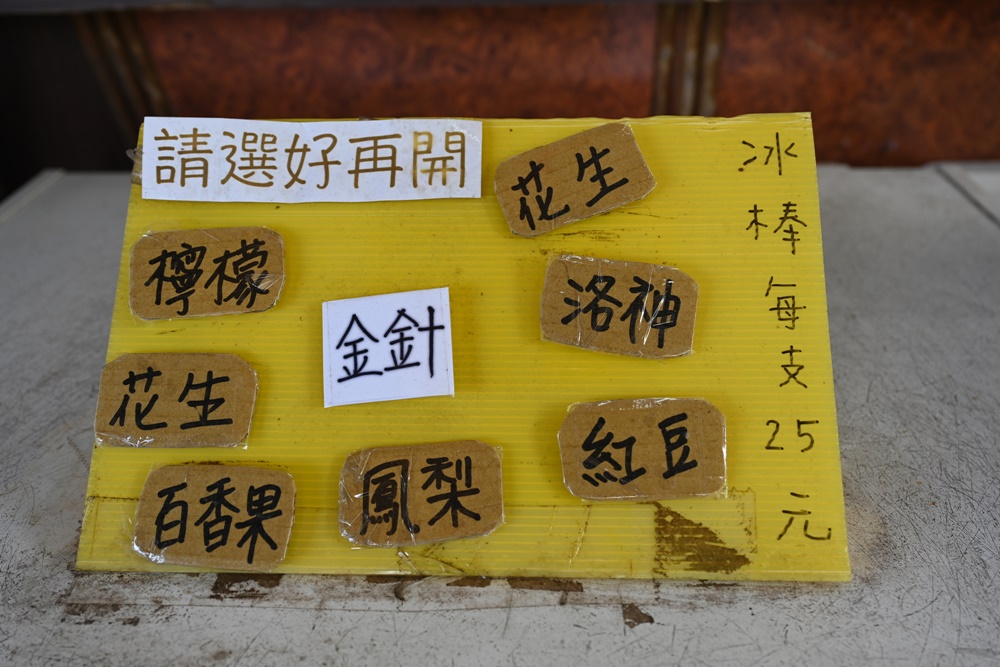 請選好再開
花生
檸檬
金針
洛神
花生
百香果
鳳梨
紅豆
冰棒每支25元